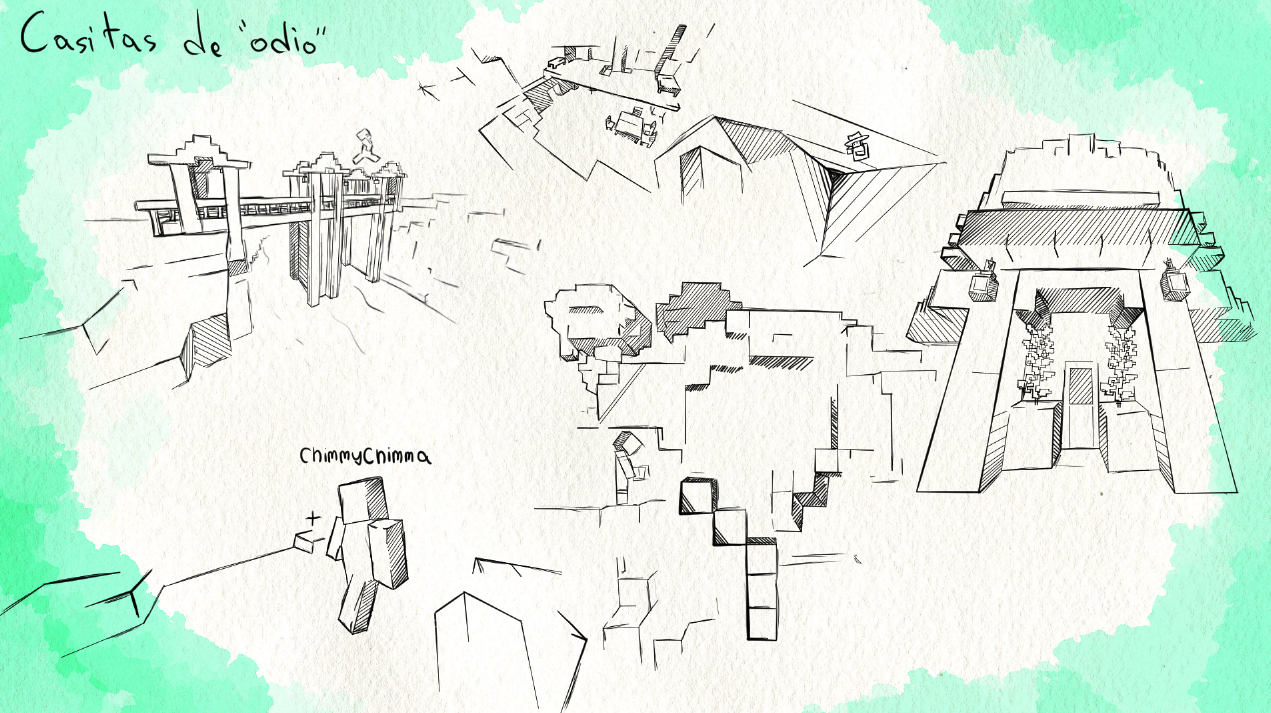 Casitas de "odio"
ChimmyChimma